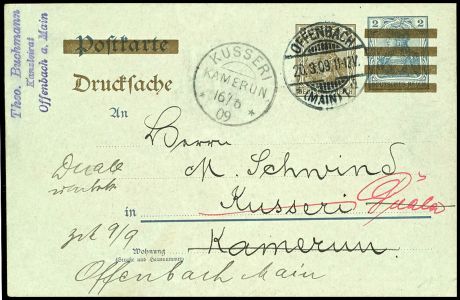 Theo. Buchmann
Kanzleirat
Offenbach a. Main
Postkarte
Drucksache
KUSSERI
KAMERUN
16/6
09
OFFENBACH
20.3.09.11-12V.
(MAIN) 1.
2
An
Herrn
M. Schwind
Duala
in Kusseri Duala
Kamerun.
zrk 9/9
Wohnung
(Straße und Hausnummer)
Offenbach Main